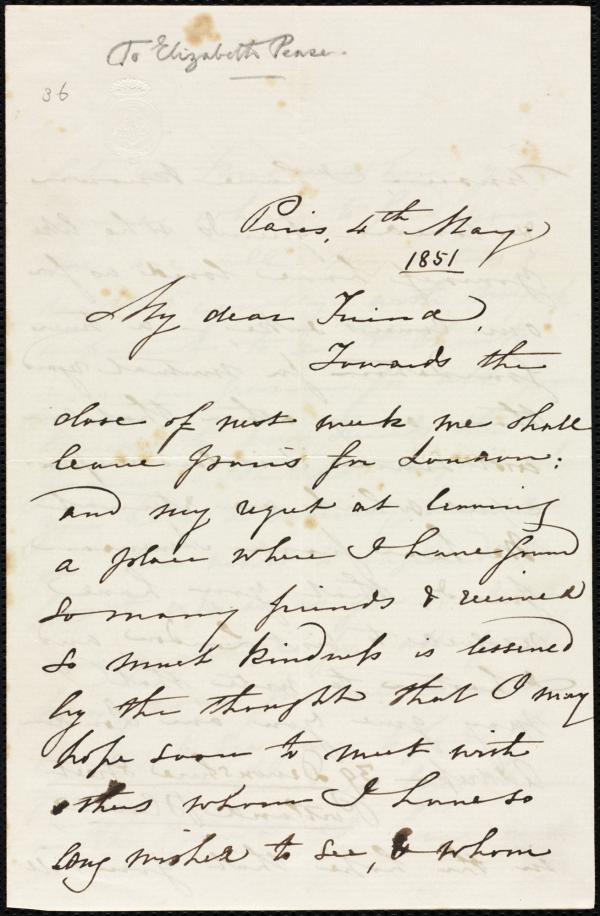 To Elizabeth Pease.
36
Paris, 4th May.
1851
My dear Friend,
Towards the
close of next week we shall
leave Paris for London:
and my regret at leaving
a place where I have found
so many friends & received
so much kindness is lessened
by the thought that I may
hope soon to meet with
others whom I have so
long wished to see, & whom